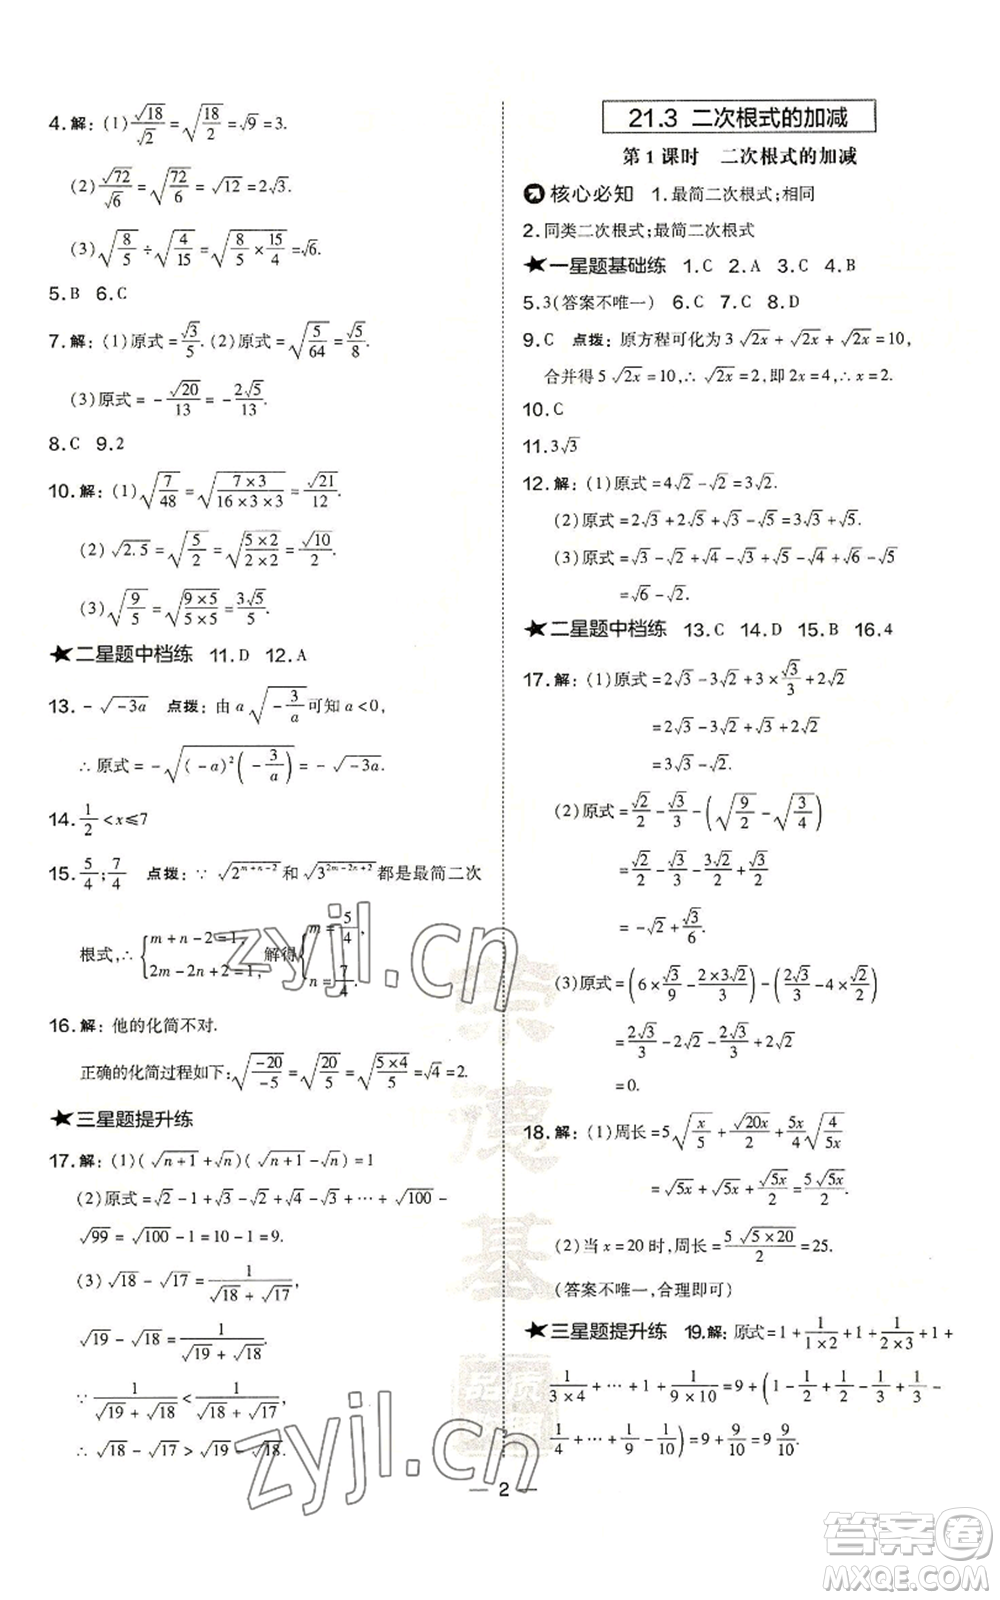 4.解：(1)√18/√2=√(18/2)=√9=3.
(2)√72/√6=√(72/6)=√12=2√3.
(3)√(8/5)÷√(4/15)=√(8/5×15/4)=√6.
5.B 6.C
7.解：(1)原式=√3/5. (2)原式=√(5/64)=√5/8.
(3)原式=-√20/13=-2√5/13.
8.C 9.2
10.解：(1)√(7/48)=√(7×3/(16×3×3))=√21/12.
(2)√2.5=√(5/2)=√(5×2/(2×2))=√10/2.
(3)√(9/5)=√(9×5/(5×5))=3√5/5.
★二星题中档练 11.D 12.A
13.-√(-3a) 点拨：由a√(-3/a)可知a<0,
∴原式=-√((-a)²(-3/a))=-√(-3a).
14.1/2<x≤7
15.5/4;7/4 点拨：∵√(2^(m+n-2))和√(3^(2m-2n+2))都是最简二次
根式,∴{m+n-2=1, 2m-2n+2=1,解得{m=5/4, n=7/4.
16.解：他的化简不对.
正确的化简过程如下:√(-20/-5)=√(20/5)=√(5×4/5)=√4=2.
★三星题提升练
17.解：(1)(√(n+1)+√n)(√(n+1)-√n)=1
(2)原式=√2-1+√3-√2+⋯+√100-
√99=√100-1=10-1=9.
(3)√18-√17=1/(√18+√17),
√19-√18=1/(√19+√18).
∵1/(√19+√18)<1/(√18+√17),
∴√18-√17>√19-√18.
21.3 二次根式的加减
第1课时 二次根式的加减
核心必知 1.最简二次根式;相同
2.同类二次根式;最简二次根式
★一星题基础练 1.C 2.A 3.C 4.B
5.3(答案不唯一) 6.C 7.C 8.D
9.C 点拨：原方程可化为3√2x+√2x+√2x=10,
合并得5√2x=10,∴√2x=2,即2x=4,∴x=2.
10.C
11.3√3
12.解：(1)原式=4√2-√2=3√2.
(2)原式=2√3+2√5+√3-√5=3√3+√5.
(3)原式=√3-√2+√4-√3+√5-√4+√6-√5
=√6-√2.
★二星题中档练 13.C 14.D 15.B 16.4
17.解：(1)原式=2√3-3√2+3×√3/3+2√2
=2√3-3√2+√3+2√2
=3√3-√2.
(2)原式=√2/2-√3/3-(√(9/2)-√(3/4))
=√2/2-√3/3-3√2/2+√3/2
=-√2+√3/6.
(3)原式=(6×√3/9-2×3√2/2)-(2√3/3-4×√2/2)
=2√3/3-3√2-2√3/3+2√2
=0.
18.解：(1)周长=5√(x/5)+√20x/2+5x/4√(4/5x)
=√5x+√5x+√5x/2=5√5x/2.
(2)当x=20时,周长=5√(5×20)/2=25.
(答案不唯一,合理即可)
★三星题提升练 19.解：原式=1+1/(1×2)+1+1/(2×3)+1+
1/(3×4)+⋯+1+1/(9×10)=9+(1-1/2+1/2-1/3+1/3-
1/4+⋯+1/9-1/10)=9+9/10=9 9/10.
— 2 —
zyjl.cn
zyjl.cn
荣德基
品质
答案卷
MXQE.COM